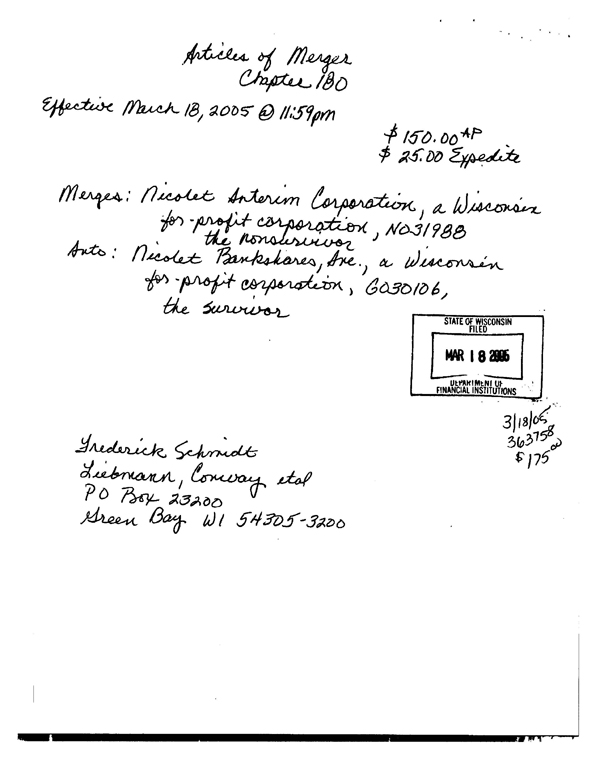 Articles of Merger
Chapter 180
Effective March 18, 2005 @ 11:59pm
$150.00 AP
$ 25.00 Expedite
Merges: Nicolet Interim Corporation, a Wisconsin
for-profit corporation, N031988
the nonsurvivor
Into: Nicolet Bankshares, Inc., a Wisconsin
for-profit corporation, G030106,
the survivor
STATE OF WISCONSIN
FILED
MAR 18 2005
DEPARTMENT OF
FINANCIAL INSTITUTIONS
3/18/05
363758
$175 00
Frederick Schmidt
Liebmann, Conway etal
PO Box 23200
Green Bay WI 54305-3200